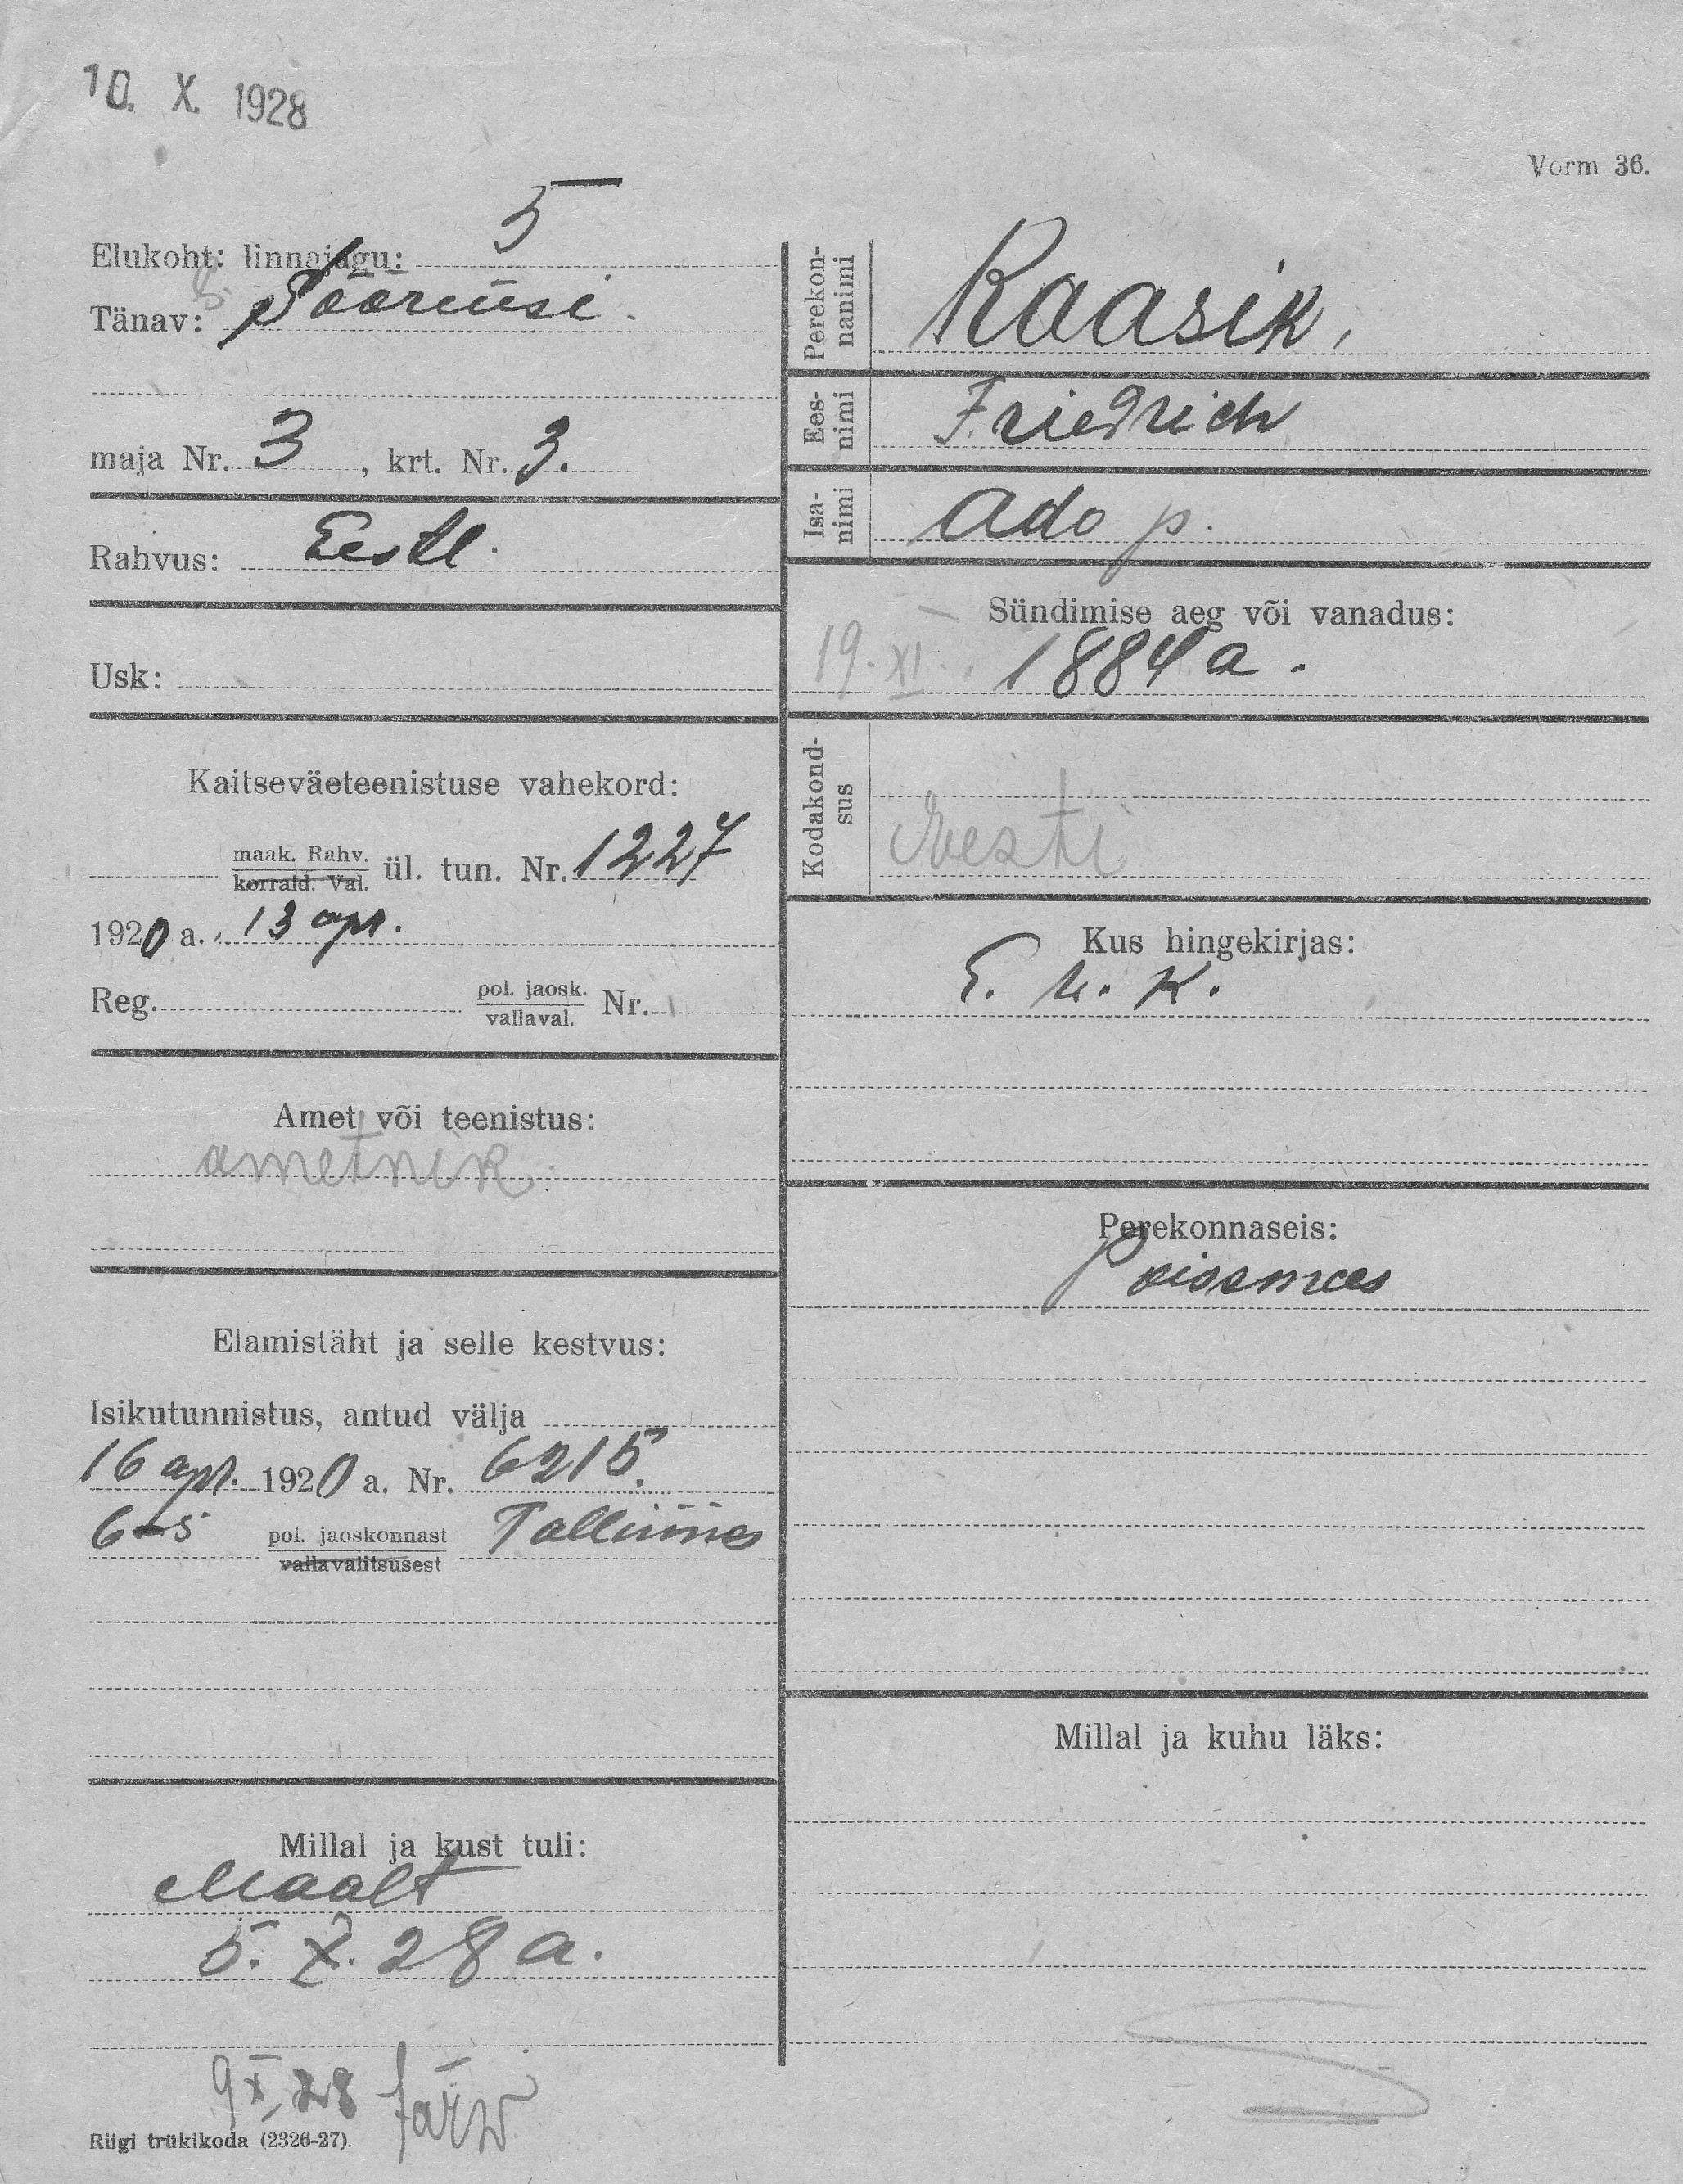 10. X. 1928
Vorm 36.
Elukoht: linnajagu: 5
Tänav:
maja Nr. 3, krt. Nr. 3.
Rahvus: Eestl.
Usk:
Kaitseväeteenistuse vahekord:
maak. Rahv.
korrald. Val. ül. tun. Nr. 1227
1920 a. 13 apr.
Reg. pol. jaosk.
vallaval. Nr.
Amet või teenistus:
ametnik
Elamistäht ja selle kestvus:
Isikutunnistus, antud välja
16 apr. 1920 a. Nr. 6215.
pol. jaoskonnast Tallinnas
vallavalitsusest
Millal ja kust tuli:
Maalt
5. X. 28 a.
9 X 28 Järw
Riigi trükikoda (2326-27).
Perekon-
nanimi
Kaasik,
Ees-
nimi
Friedrich
Isa-
nimi
Ado p.
Sündimise aeg või vanadus:
19. XI. 1884 a.
Kodakond-
sus
Eesti
Kus hingekirjas:
Perekonnaseis:
Poissmees
Millal ja kuhu läks: